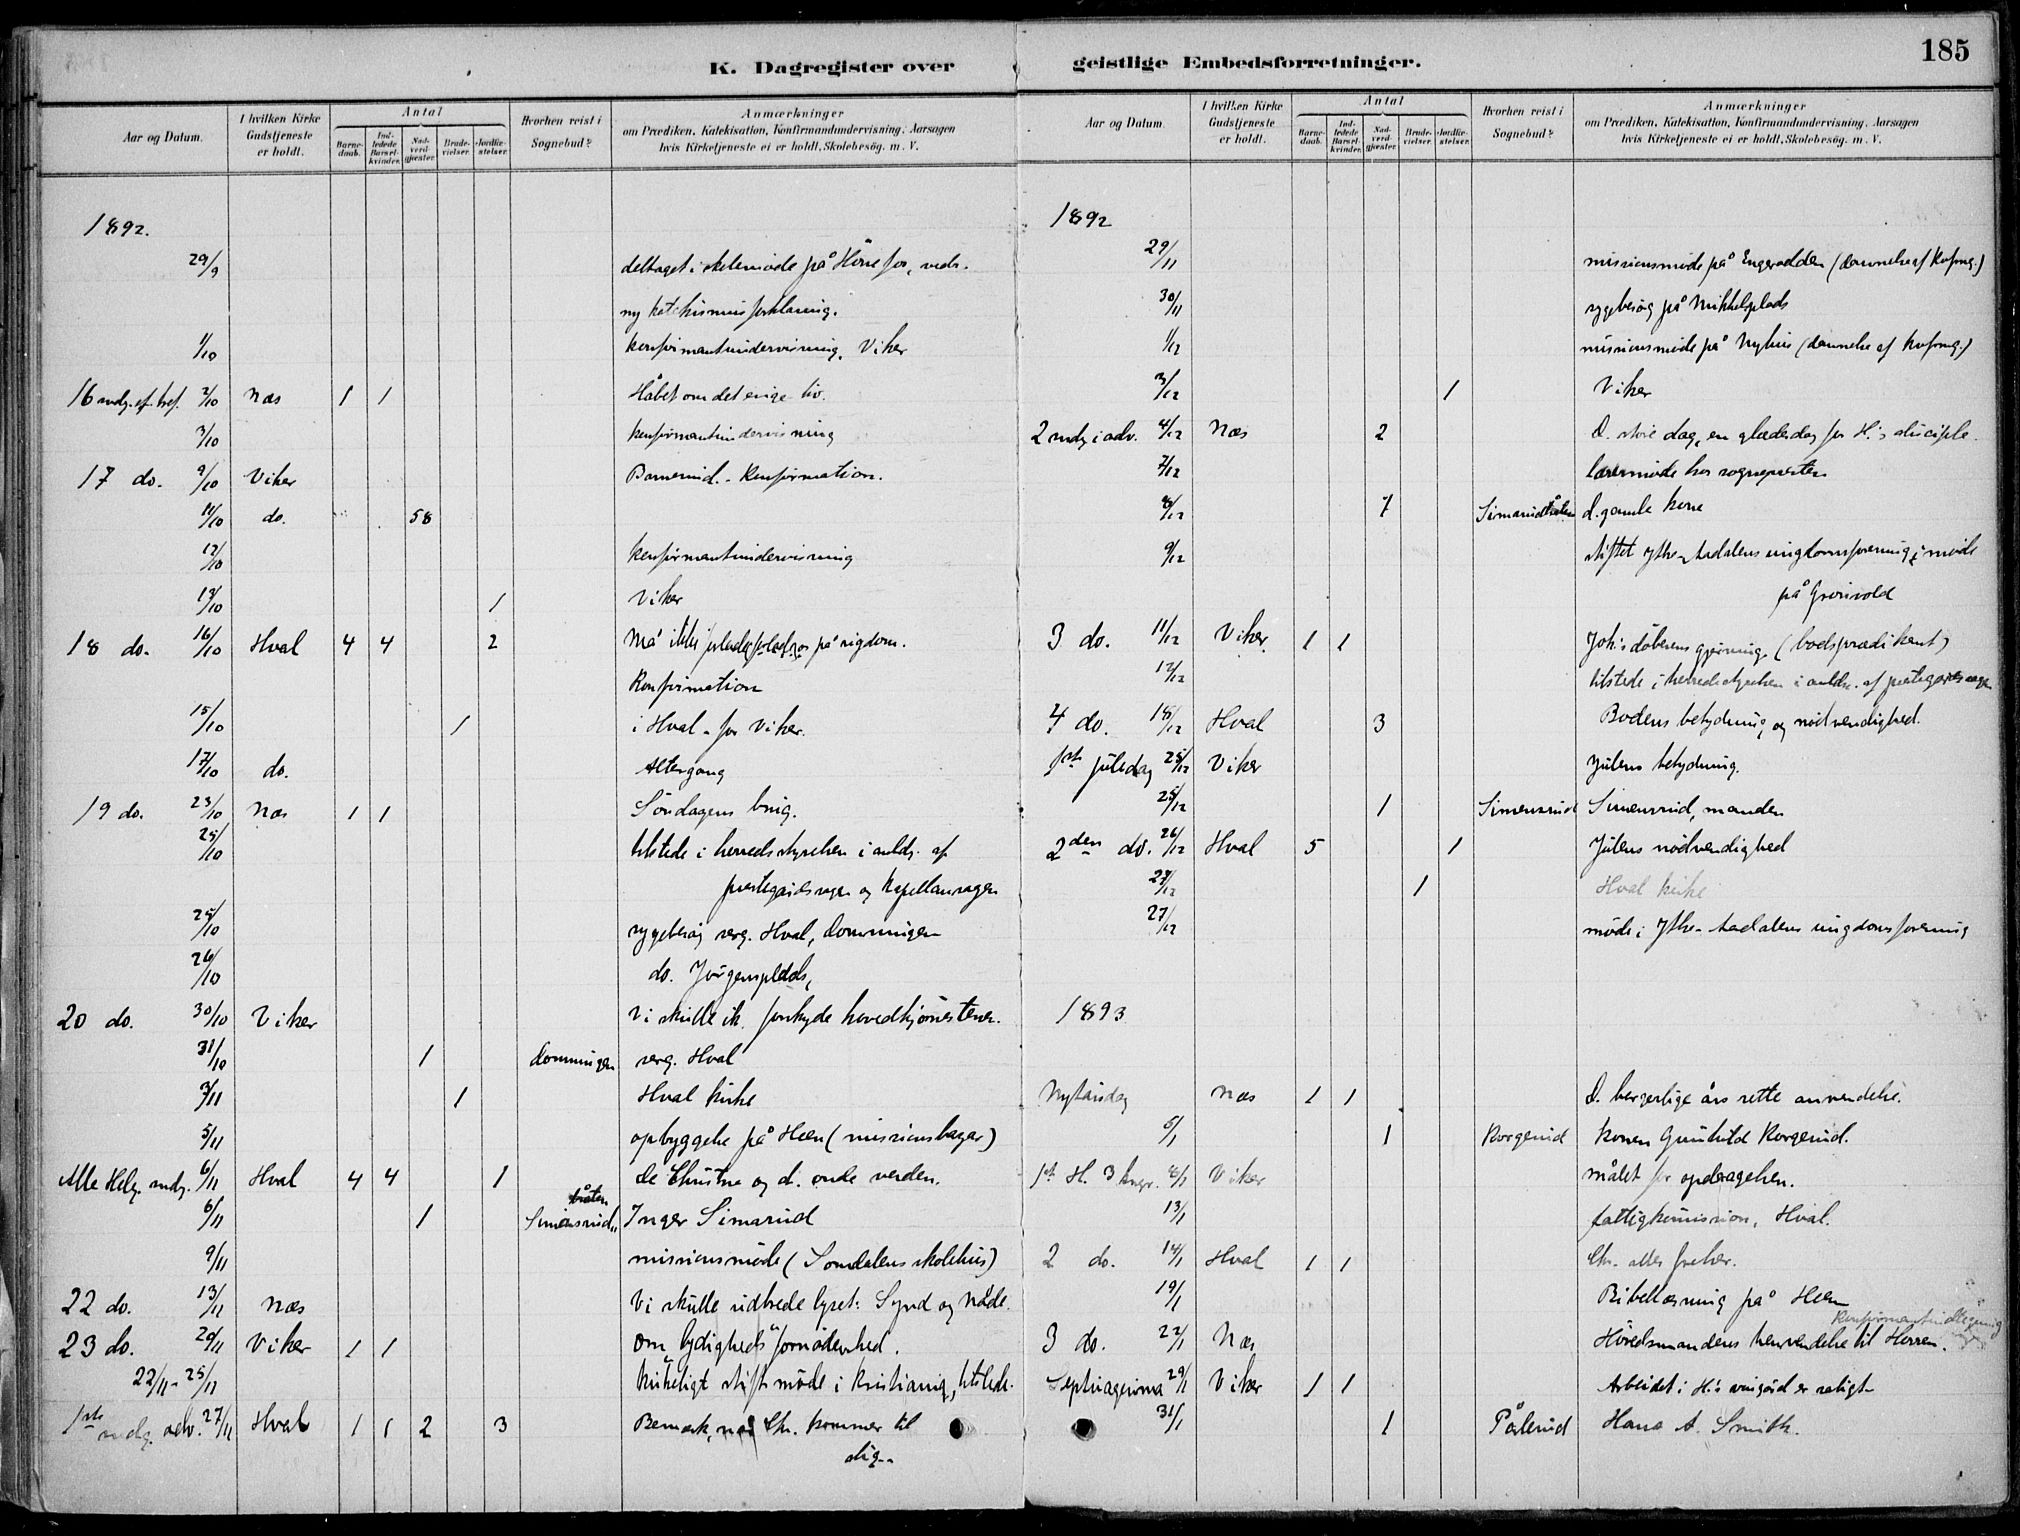 K. Dagregister over geistlige Embedsforretninger.
185
Aar og Datum.
I hvilken Kirke Gudstjeneste er holdt.
Antal
Barnedaab.
Indledede Barselkvinder.
Nadverdgjæster.
Brudevielser.
Jordfæstelser.
Hvorhen reist i Sognebud?
Anmærkninger
om Prædiken, Katekisation, Konfirmandundervisning, Aarsagen
hvis Kirketjeneste ei er holdt, Skolebesög. m. V.
1892.
29/9 deltaget i skolemöde på Hönefos, vedr.
ny katekismusforklaring.
1/10 konfirmantundervisning. Viker
16 sndg. ef. tref. 2/10 Næs 1 1 Håbet om det evige liv.
3/10 konfirmantundervisning
17 do. 9/10 Viker Barnesind. - Konfirmation.
11/10 do. 58
12/10 konfirmantundervisning
13/10 1 Viker
18 do. 16/10 Hval 4 4 2 Må ikke forlade os på rigdom.
Konfirmation
15/10 1 i Hval - for Viker.
17/10 do. Altergang
19 do. 23/10 Næs 1 1 Söndagens brug.
25/10 tilstede i herredsstyrelsen i anldg. af
prestegårdssagen og kapellansagen
25/10 sygebesög serg. Hval, Domningen
26/10 do. Jörgensplads,
20 do. 30/10 Viker Vi skulle ik. forskyde hovedhjörnestenen.
31/10 1 Domningen serg. Hval
3/11 1 Hval kirke
5/11 opbyggelse på Heen (missionsbazar)
Alle Helg. sndg. 6/11 Hval 4 4 1 De Christne og d. onde verden.
6/11 1 Simensrud bråten Inger Simarud
9/11 missionsmöde (Somdalens skolehus)
22 do. 13/11 Næs Vi skulle udbrede lyset: Synd og Nåde.
23 do. 20/11 Viker 1 1 Om lydigheds fornödenhed.
22/11 - 25/11 kirkeligt stiftsmöde i Kristiania, tilstede.
1ste sndg. adv. 27/11 Hval 1 1 2 3 Bemærk, når Chr. kommer til
dig.
Aar og Datum
I hvilken Kirke Gudstjeneste er holdt.
Antal
Barnedaab.
Indledede Barselkvinder.
Nadverdgjæster.
Brudevielser.
Jordfæstelser.
Hvorhen reist i Sognebud?
Anmærkninger
om Prædiken, Katekisation, Konfirmandundervisning, Aarsagen
hvis Kirketjeneste ei er holdt, Skolebesög. m. V.
1892
29/11 missionsmöde på Engerodden (dannelse af kvfong.)
30/11 sygebesög på Mikkelsplads
1/12 missionsmöde på Nyhus (dannelse af kvfong.)
3/12 1 Viker
2 sndg i adv. 4/12 Næs 2 D. store dag, en glædesdag for H.'s disciple.
7/12 lærermöde hos sognepresten
8/12 1 Simarudbråten d. gamle kone
9/12 stiftet Ytre-Aadalens ungdomsforening i möde
på Grönvold
3 do. 11/12 Viker. 1 1 Joh.'s döberens gjerning (bodsprædikant)
12/12 tilstede i herredsstyrelsen i anldn. af prestegårdssagen
4 do. 18/12 Hval 3 Bodens betydning og nödvendighed.
1ste juledag 25/12 Viker Julens betydning.
25/12 1 Simensrud Simensrud, manden
2den do. 26/12 Hval 5 1 Julens nödvendighed
27/12 1 Hval kirke
27/12 möde i Ytre-Aadalens ungdomsforening
1893
Nytårsdag Næs 1 1 D. borgerlige års rette anvendelse.
5/1 1 Korgerud Konen Gunhild Korgerud.
1st H. 3 kngr. 8/1 Viker målet for opdragelsen.
13/1 fattigkomission, Hval.
2 do. 14/1 Hval 1 1 Chr. alles frelser.
19/1 Bibellæsning på Heen
konfirmantindtegning
3 do. 22/1 Næs Hövedsmandens henvendelse til Herren.
Septuagesima 29/1 Viker 1 1 Arbeidet i H.'s vingård er saligt
31/1 1 Pålerud Hans A. Smith.